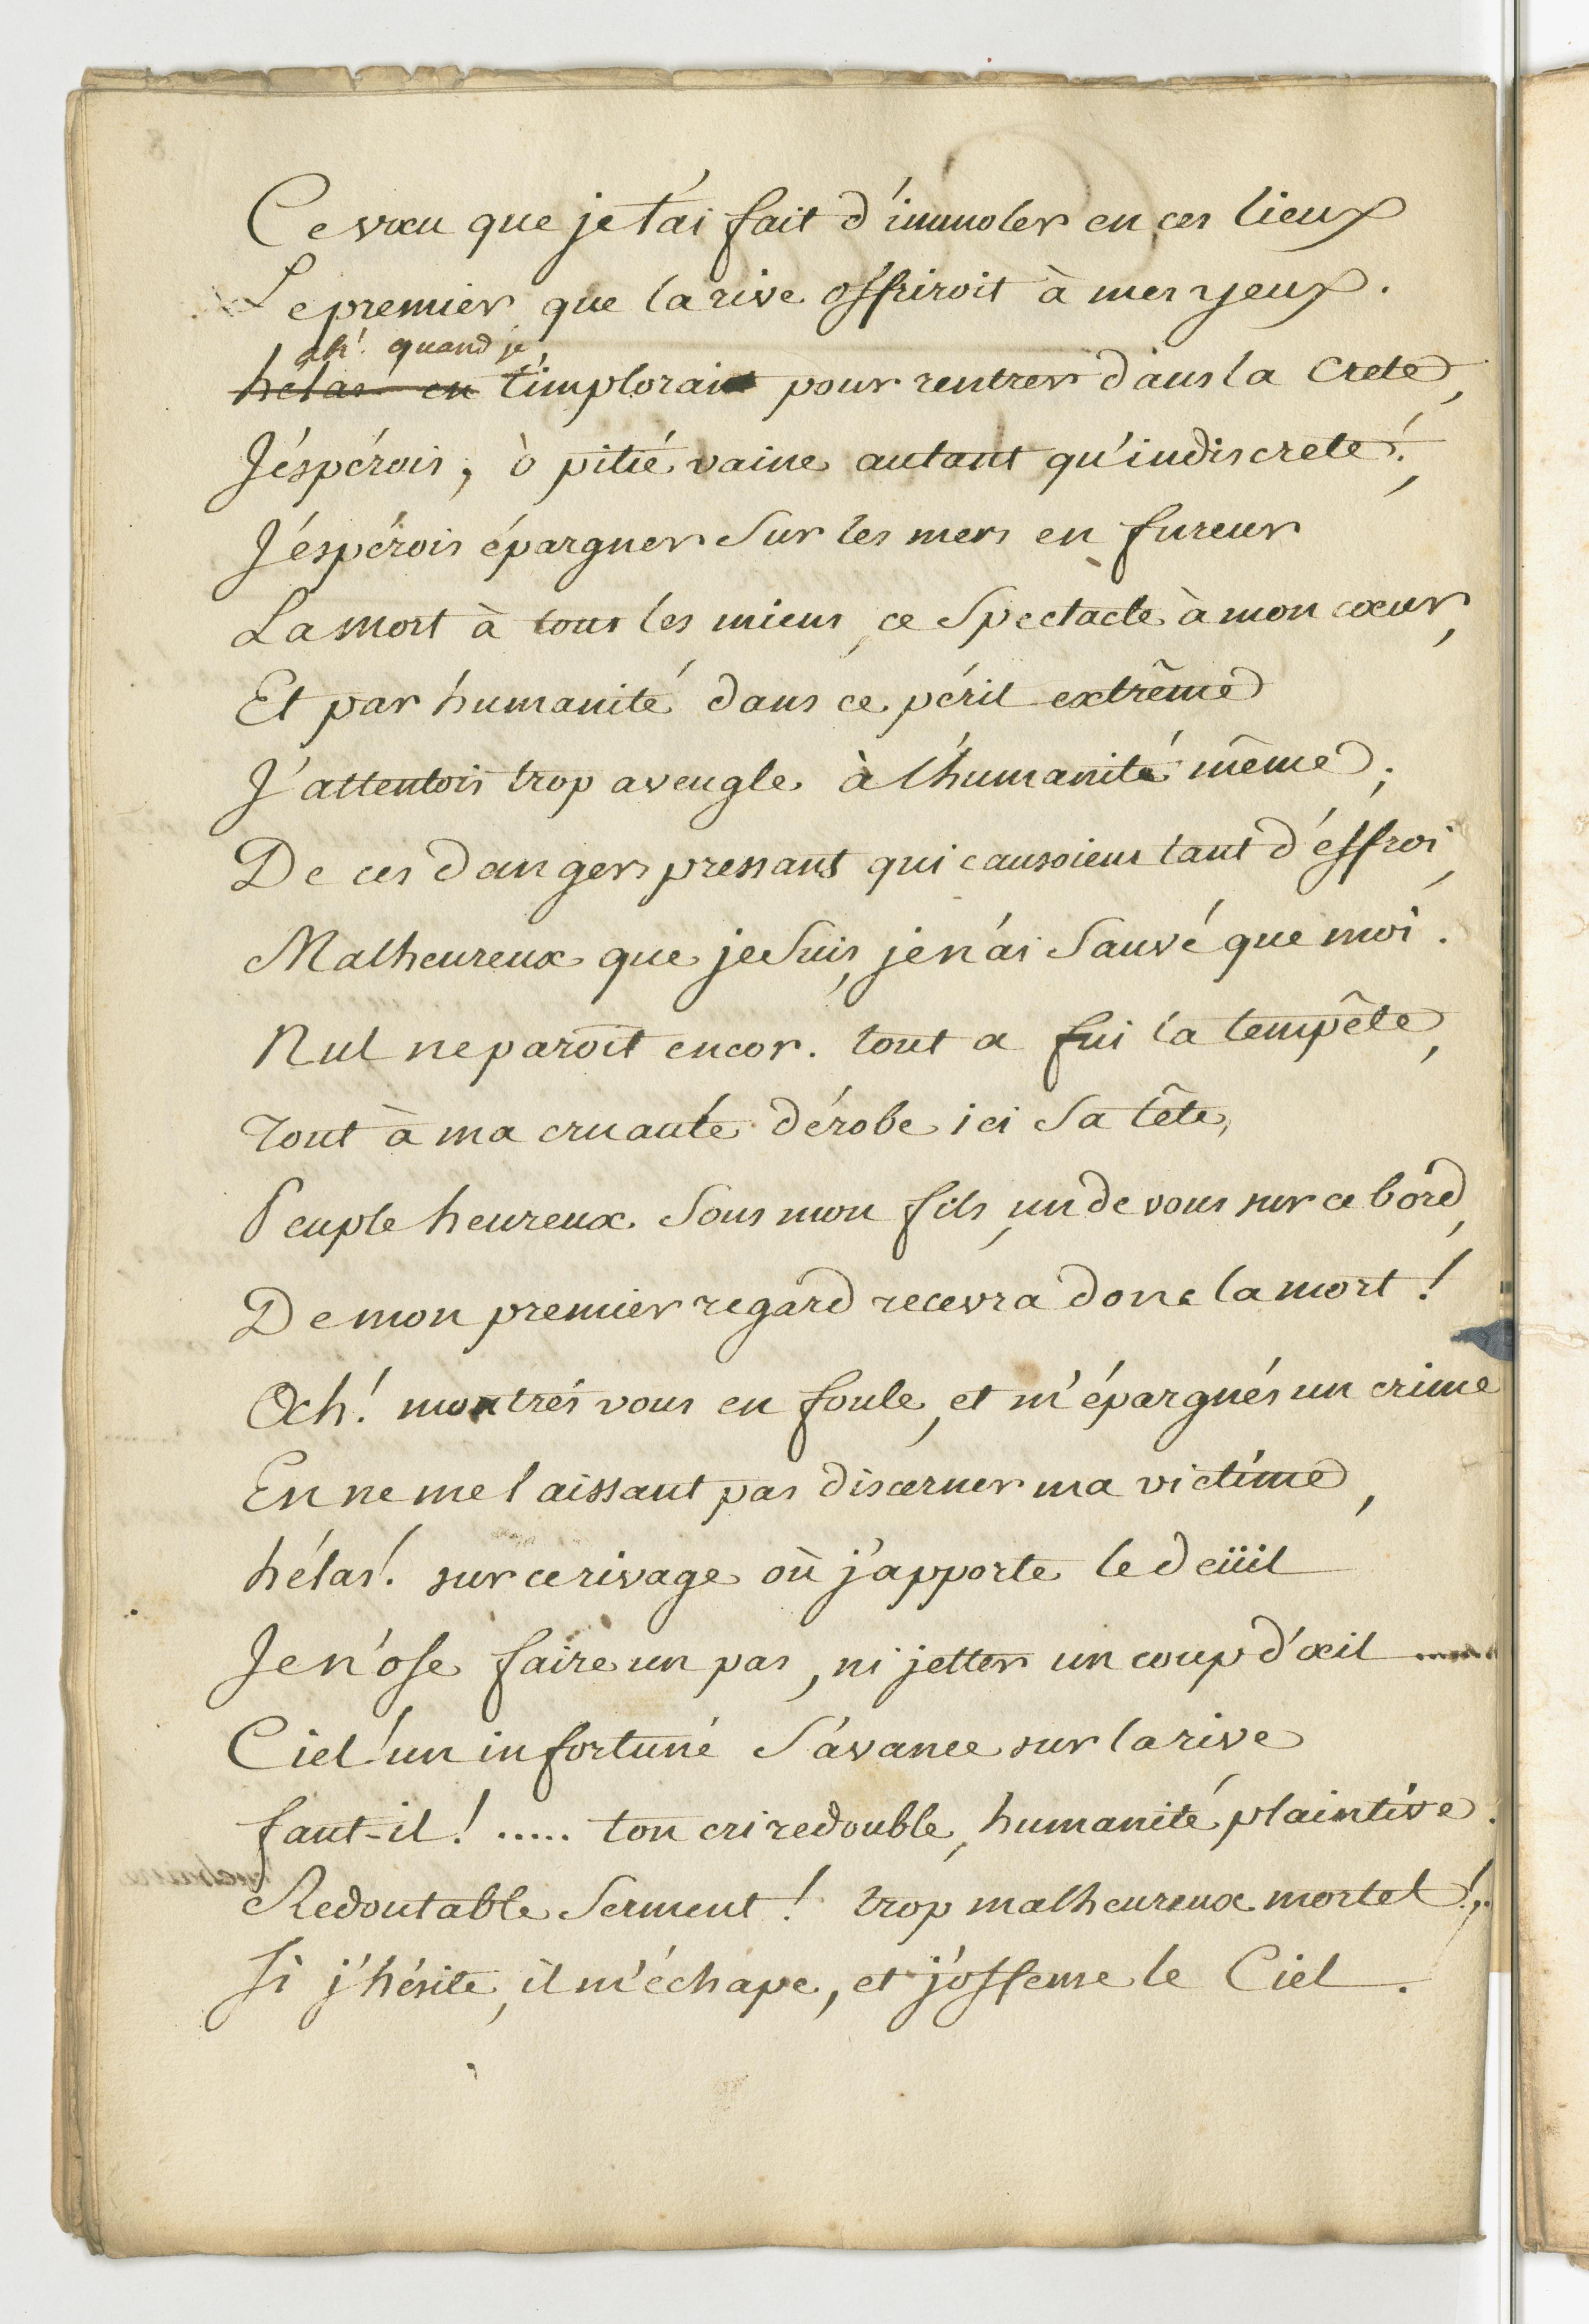 Ce vœu que je t'ai fait d'immoler en ces lieux
Le premier que la rive offriroit à mes yeux.
ah! quand je
hélas en t'implorais pour rentrer dans la Crete,
J'éspérois, ò pitié vaine autant qu'indiscrete!,
J'éspérois épargner sur les mers en fureur
La mort à tous les miens, ce spectacle à mon cœur,
Et par humanité dans ce péril extrême
J'attentois trop aveugle à l'humanité même;
De ces dangers pressants qui causoient tant d'éffroi,
Malheureux que je suis, je n'ai sauvé que moi.
Nul ne paroît encor. tout a fui la tempête,
Tout à ma cruauté dérobe ici sa tête,
Peuple heureux sous mon fils, un de vous sur ce bord,
De mon premier regard recevra donc la mort!
Ach! montrés vous en foule, et m'épargnés un crime
En ne me laissant pas discerner ma victime,
hélas! sur ce rivage où j'apporte le deüil
Je n'ose faire un pas, ni jetter un coup d'œil ......
Ciel! un infortuné s'avance sur la rive
faut-il! ..... ton cri redouble, humanité plaintive.
Redoutable serment! trop malheureux mortel!..
Si j'hésite, il m'échape, et j'offense le Ciel.